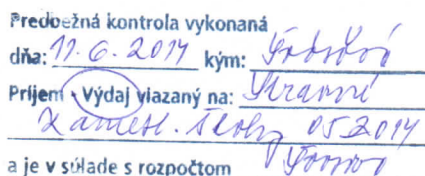 Predbežná kontrola vykonaná
dňa: 11.6.2014 kým:
Príjem - Výdaj viazaný na: Stravné
zamest. školy 05.2014
a je v súlade s rozpočtom